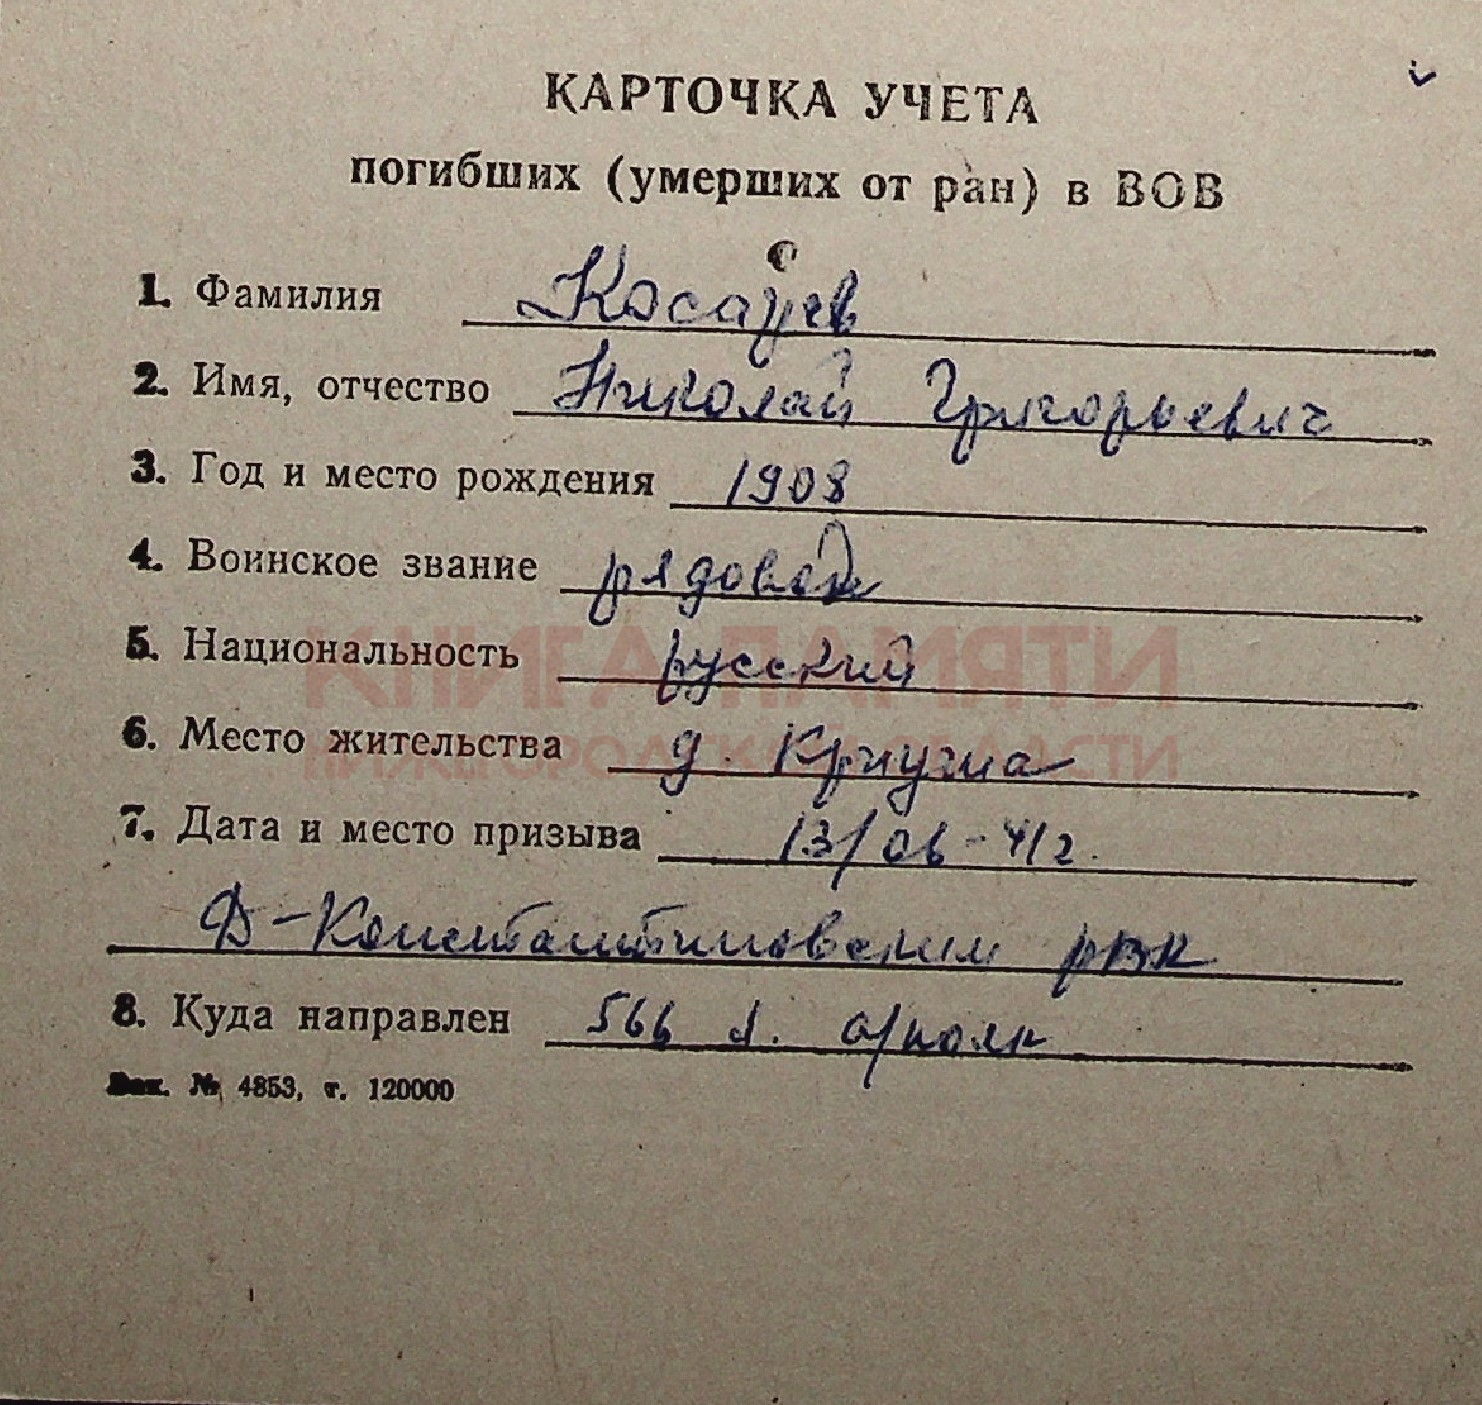 КАРТОЧКА УЧЕТА
погибших (умерших от ран) в ВОВ
с
1. Фамилия Косарев
2. Имя, отчество Николай Григорьевич
3. Год и место рождения 1908
4. Воинское звание рядовой
5. Национальность русский
КНИГА ПАМЯТИ
6. Место жительства д. Криуша
НИЖЕГОРОДСКОЙ ОБЛАСТИ
7. Дата и место призыва 13/06-41г.
Д-Константиновским рвк
8. Куда направлен 566 а/полк
Зак. № 4853, т. 120000